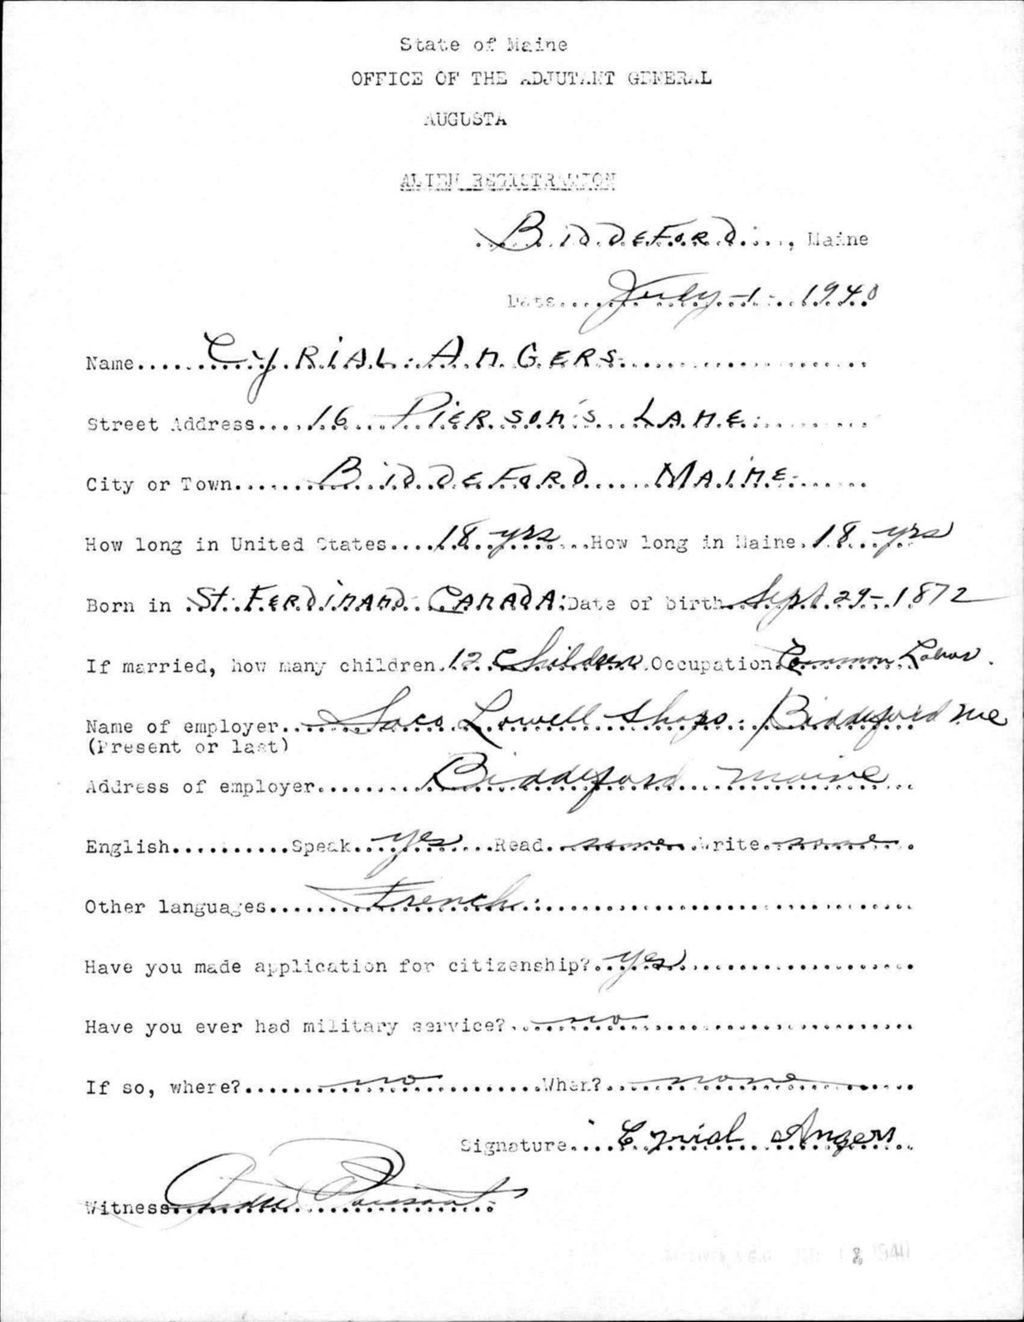 State of Maine
OFFICE OF THE ADJUTANT GENERAL
AUGUSTA
ALIEN REGISTRATION
BIDDEFORD, Maine
Date July - 1 - 1940
Name CYRIAL ANGERS
Street Address 16 PIERSON'S LANE
City or Town BIDDEFORD MAINE
How long in United States 18 yrs How long in Maine 18 yrs
Born in ST. FERDINAND CANADA Date of birth Sept. 29 - 1872
If married, how many children 12 Children Occupation Common Labor
Name of employer Saco Lowell Shops. Biddeford Me
(Present or last)
Address of employer Biddeford Maine
English Speak yes Read some Write some
Other languages French
Have you made application for citizenship? yes
Have you ever had military service? no
If so, where? no When? none
Signature Cyrial Angers
Witness